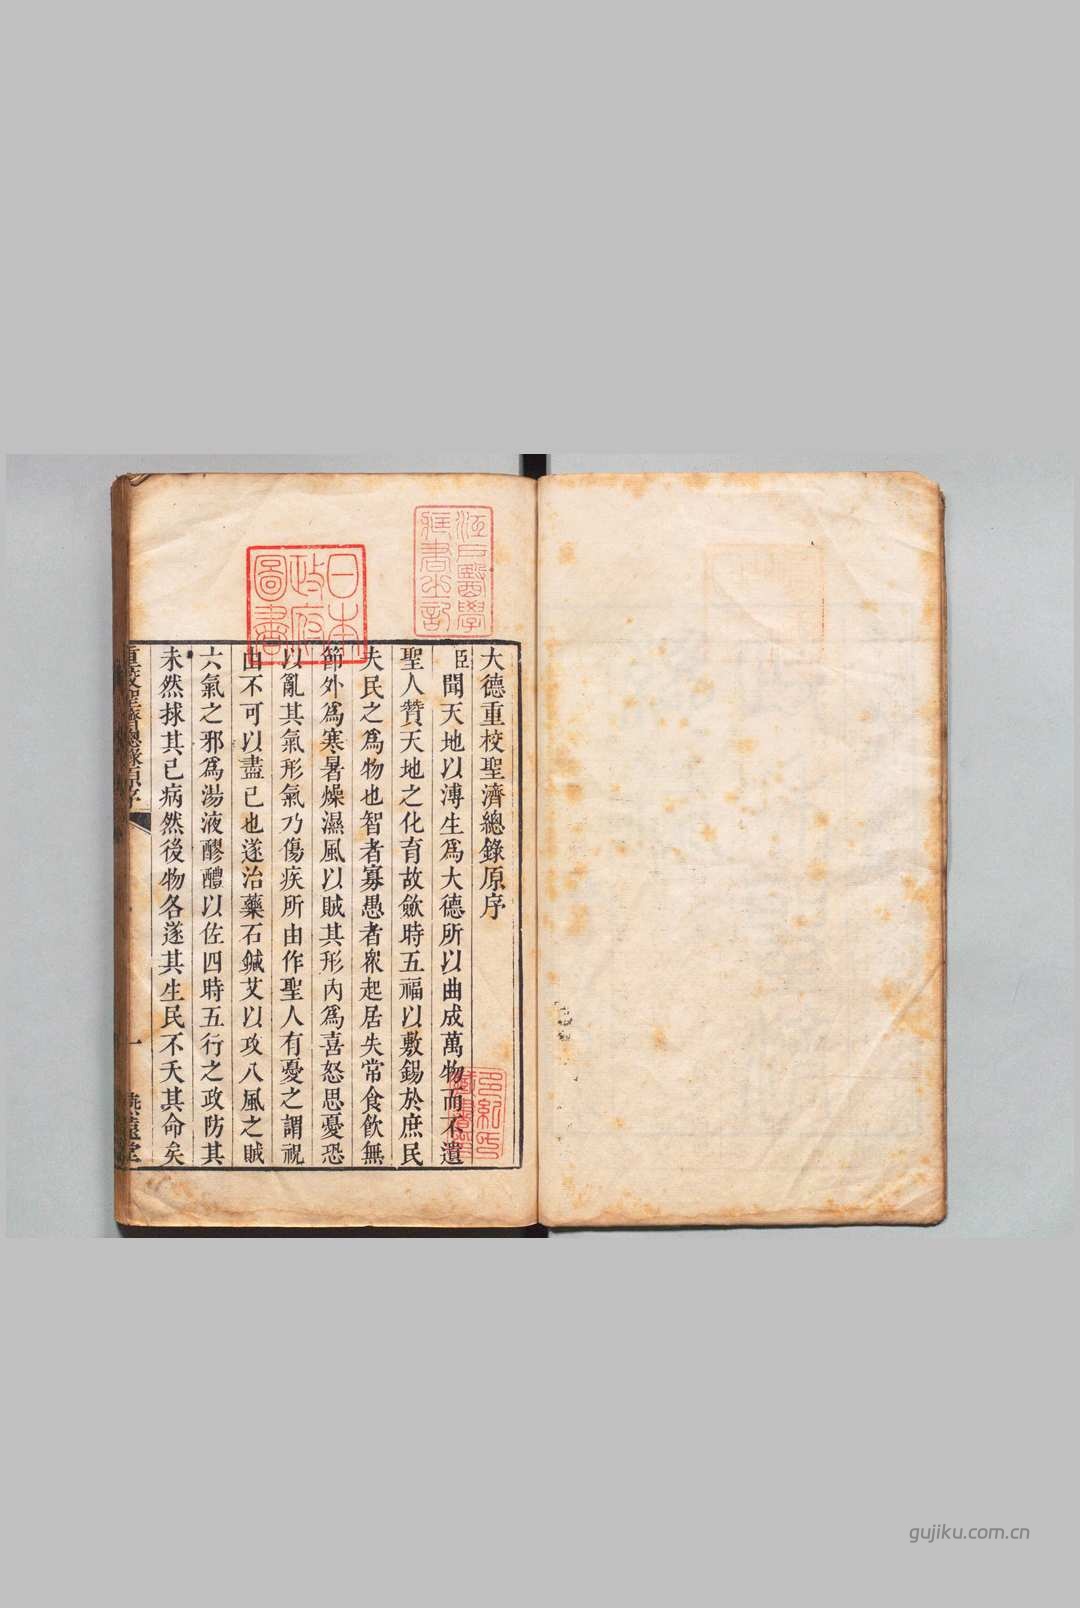 大德重校聖濟總錄原序
臣聞天地以溥生爲大德所以曲成萬物而不遺
聖人贊天地之化育故歛時五福以敷錫於庶民
夫民之爲物也智者寡愚者衆起居失常食飲無
節外爲寒暑燥濕風以賊其形內爲喜怒思憂恐
以亂其氣形氣乃傷疾所由作聖人有憂之謂祝
由不可以盡已也遂治藥石鍼艾以攻八風之賊
六氣之邪爲湯液醪醴以佐四時五行之政防其
未然捄其已病然後物各遂其生民不夭其命矣
重校聖濟總錄原序
一
燕遠堂
江戶醫學
藏書之記
日本
政府
圖書
gujiku.com.cn